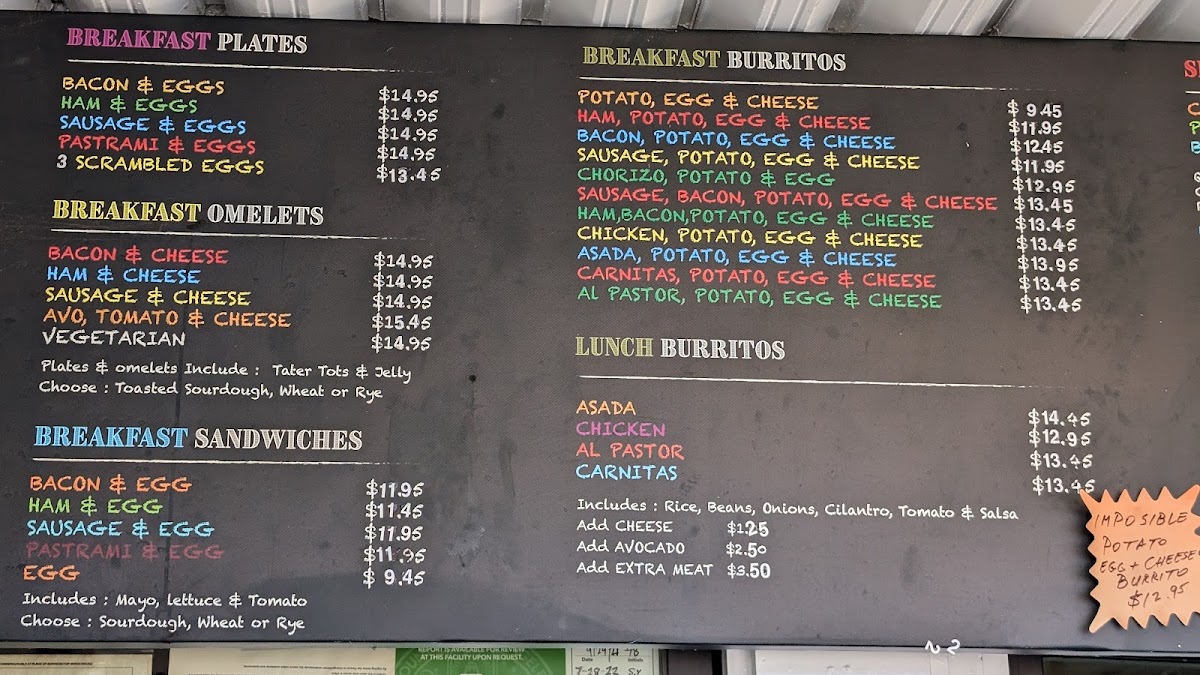 BREAKFAST PLATES
BACON & EGGS $14.95
HAM & EGGS $14.95
SAUSAGE & EGGS $14.95
PASTRAMI & EGGS $14.95
3 SCRAMBLED EGGS $13.45
BREAKFAST OMELETS
BACON & CHEESE $14.95
HAM & CHEESE $14.95
SAUSAGE & CHEESE $14.95
AVO, TOMATO & CHEESE $15.45
VEGETARIAN $14.95
Plates & omelets Include : Tater Tots & Jelly
Choose : Toasted Sourdough, Wheat or Rye
BREAKFAST SANDWICHES
BACON & EGG $11.95
HAM & EGG $11.45
SAUSAGE & EGG $11.95
PASTRAMI & EGG $11.95
EGG $ 9.45
Includes : Mayo, lettuce & Tomato
Choose : Sourdough, Wheat or Rye
BREAKFAST BURRITOS
POTATO, EGG & CHEESE $ 9.45
HAM, POTATO, EGG & CHEESE $11.95
BACON, POTATO, EGG & CHEESE $12.45
SAUSAGE, POTATO, EGG & CHEESE $11.95
CHORIZO, POTATO & EGG $12.95
SAUSAGE, BACON, POTATO, EGG & CHEESE $13.45
HAM,BACON,POTATO, EGG & CHEESE $13.45
CHICKEN, POTATO, EGG & CHEESE $13.45
ASADA, POTATO, EGG & CHEESE $13.95
CARNITAS, POTATO, EGG & CHEESE $13.45
AL PASTOR, POTATO, EGG & CHEESE $13.45
LUNCH BURRITOS
ASADA $14.45
CHICKEN $12.95
AL PASTOR $13.45
CARNITAS $13.45
Includes : Rice, Beans, Onions, Cilantro, Tomato & Salsa
Add CHEESE $1.25
Add AVOCADO $2.50
Add EXTRA MEAT $3.50
IMPOSIBLE
POTATO
EGG + CHEESE
BURRITO
$12.95
REPORT IS AVAILABLE FOR REVIEW
AT THIS FACILITY UPON REQUEST.
Date Initials
7-28-22 SY